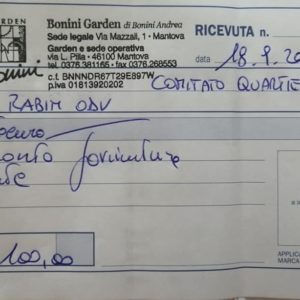 ARDEN
Bonini Garden di Bonini Andrea
Sede legale Via Mazzali, 1 - Mantova
Garden e sede operativa
via L. Pilla - 46100 Mantova
tel. 0376.381165 - fax 0376.268553
c.f. BNNNDR67T29E897W
p.iva 01813920202
RICEVUTA n.
data 18.9.20
COMITATO QUARTIE
RABIM ODV
conto fornitura
100,00
APPLIC
MARCA